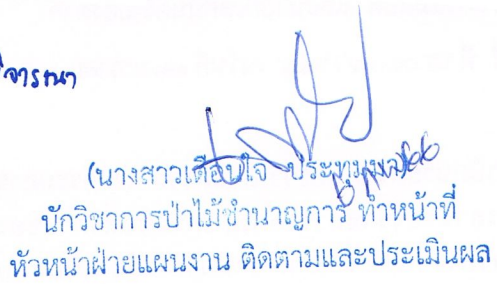 (นางสาวเดือนใจ ประทุมมล)
นักวิชาการป่าไม้ชำนาญการ ทำหน้าที่
หัวหน้าฝ่ายแผนงาน ติดตามและประเมินผล